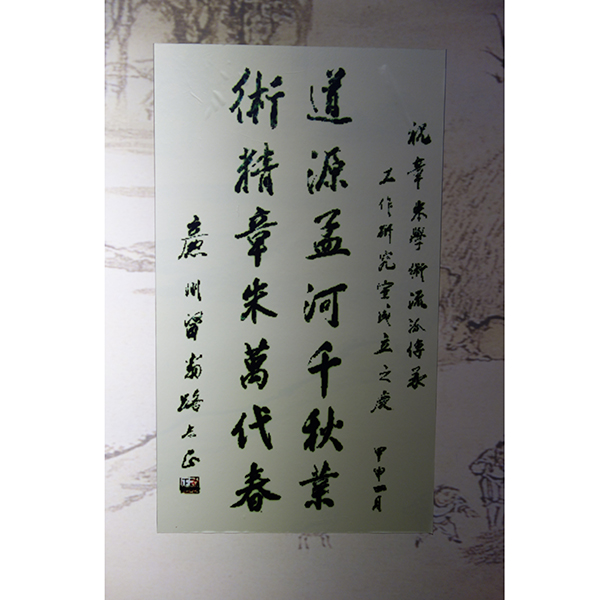 祝章朱學術流派傳承
工作研究室成立之慶 甲申一月
道源孟河千秋業
術精章朱萬代春
廉州醫翁路志正